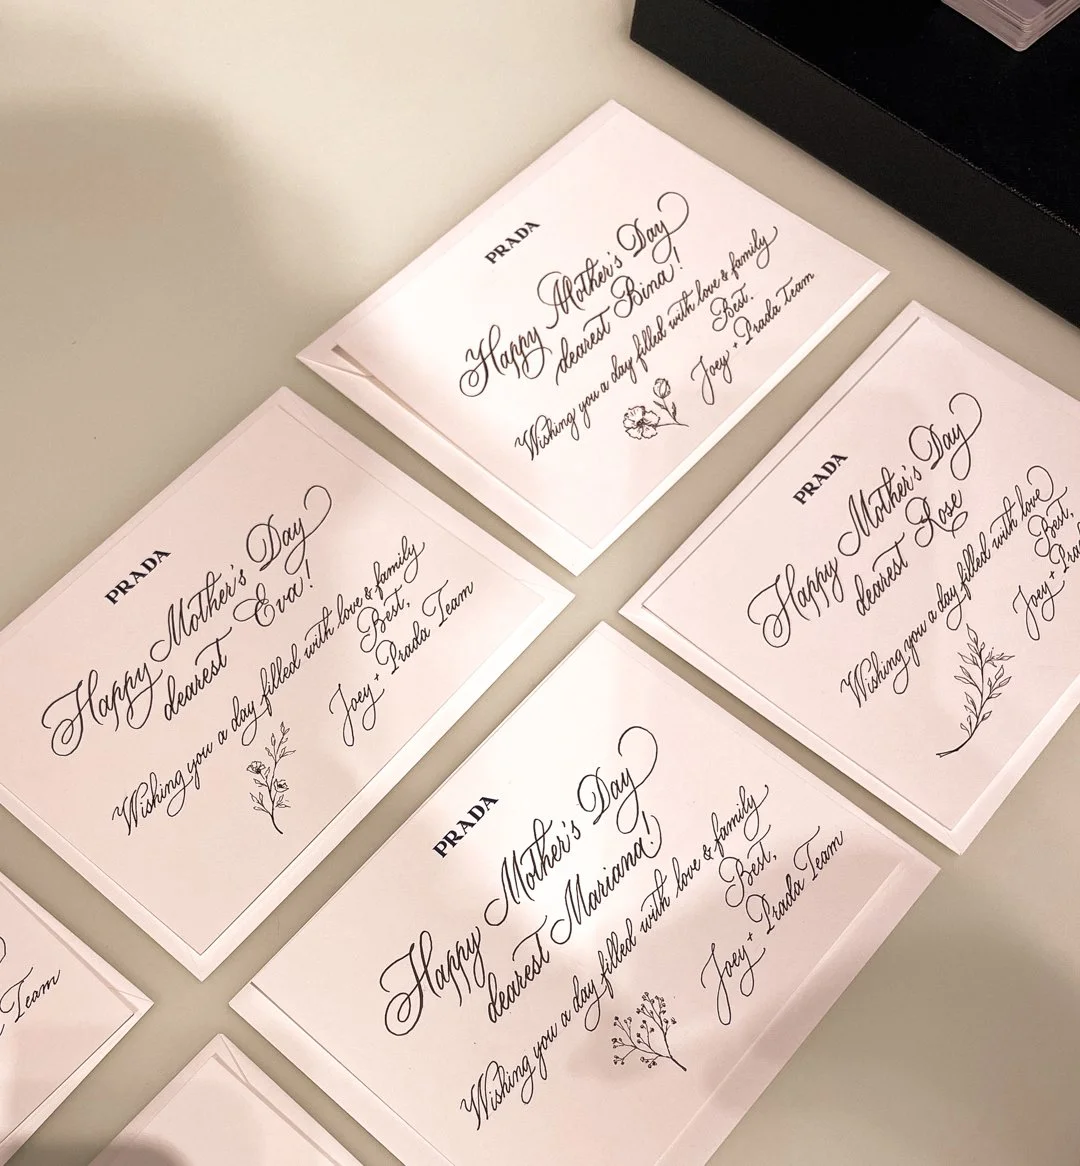 PRADA
Happy Mother's Day
dearest Bina!
Wishing you a day filled with love & family
Best,
Joey + Prada Team
PRADA
Happy Mother's Day
dearest Rose
Wishing you a day filled with love
Best,
Joey + Prada
PRADA
Happy Mother's Day
dearest Eva!
Wishing you a day filled with love & family
Best,
Joey + Prada Team
PRADA
Happy Mother's Day
dearest Mariana!
Wishing you a day filled with love & family
Best,
Joey + Prada Team
Team